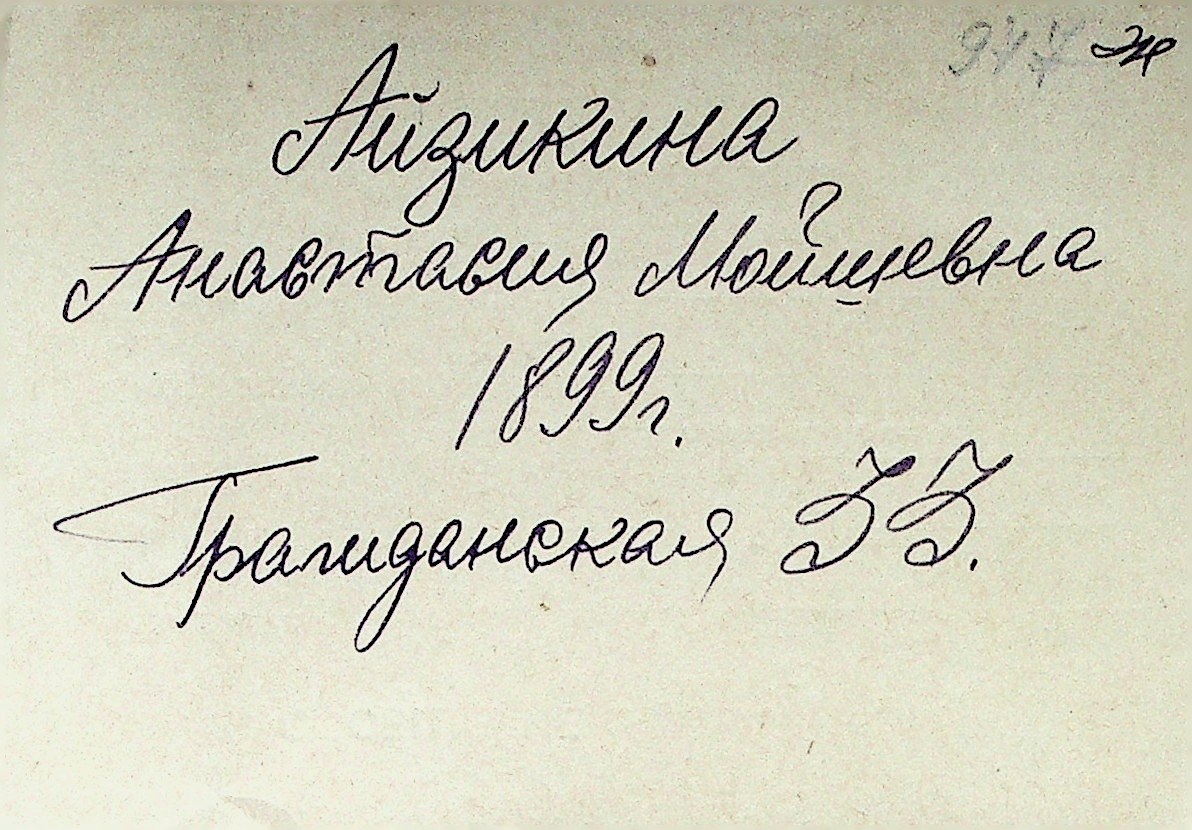 Айзикина
Анастасия Мойшевна
1899г.
Гражданская 33.